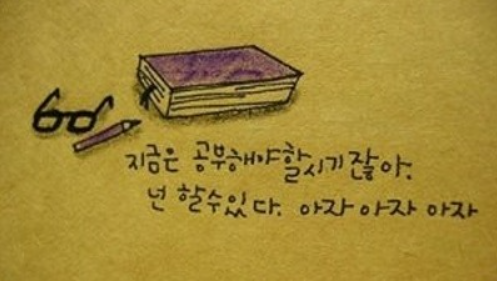 지금은 공부해야할시기잖아.
넌 할수있다. 아자 아자 아자